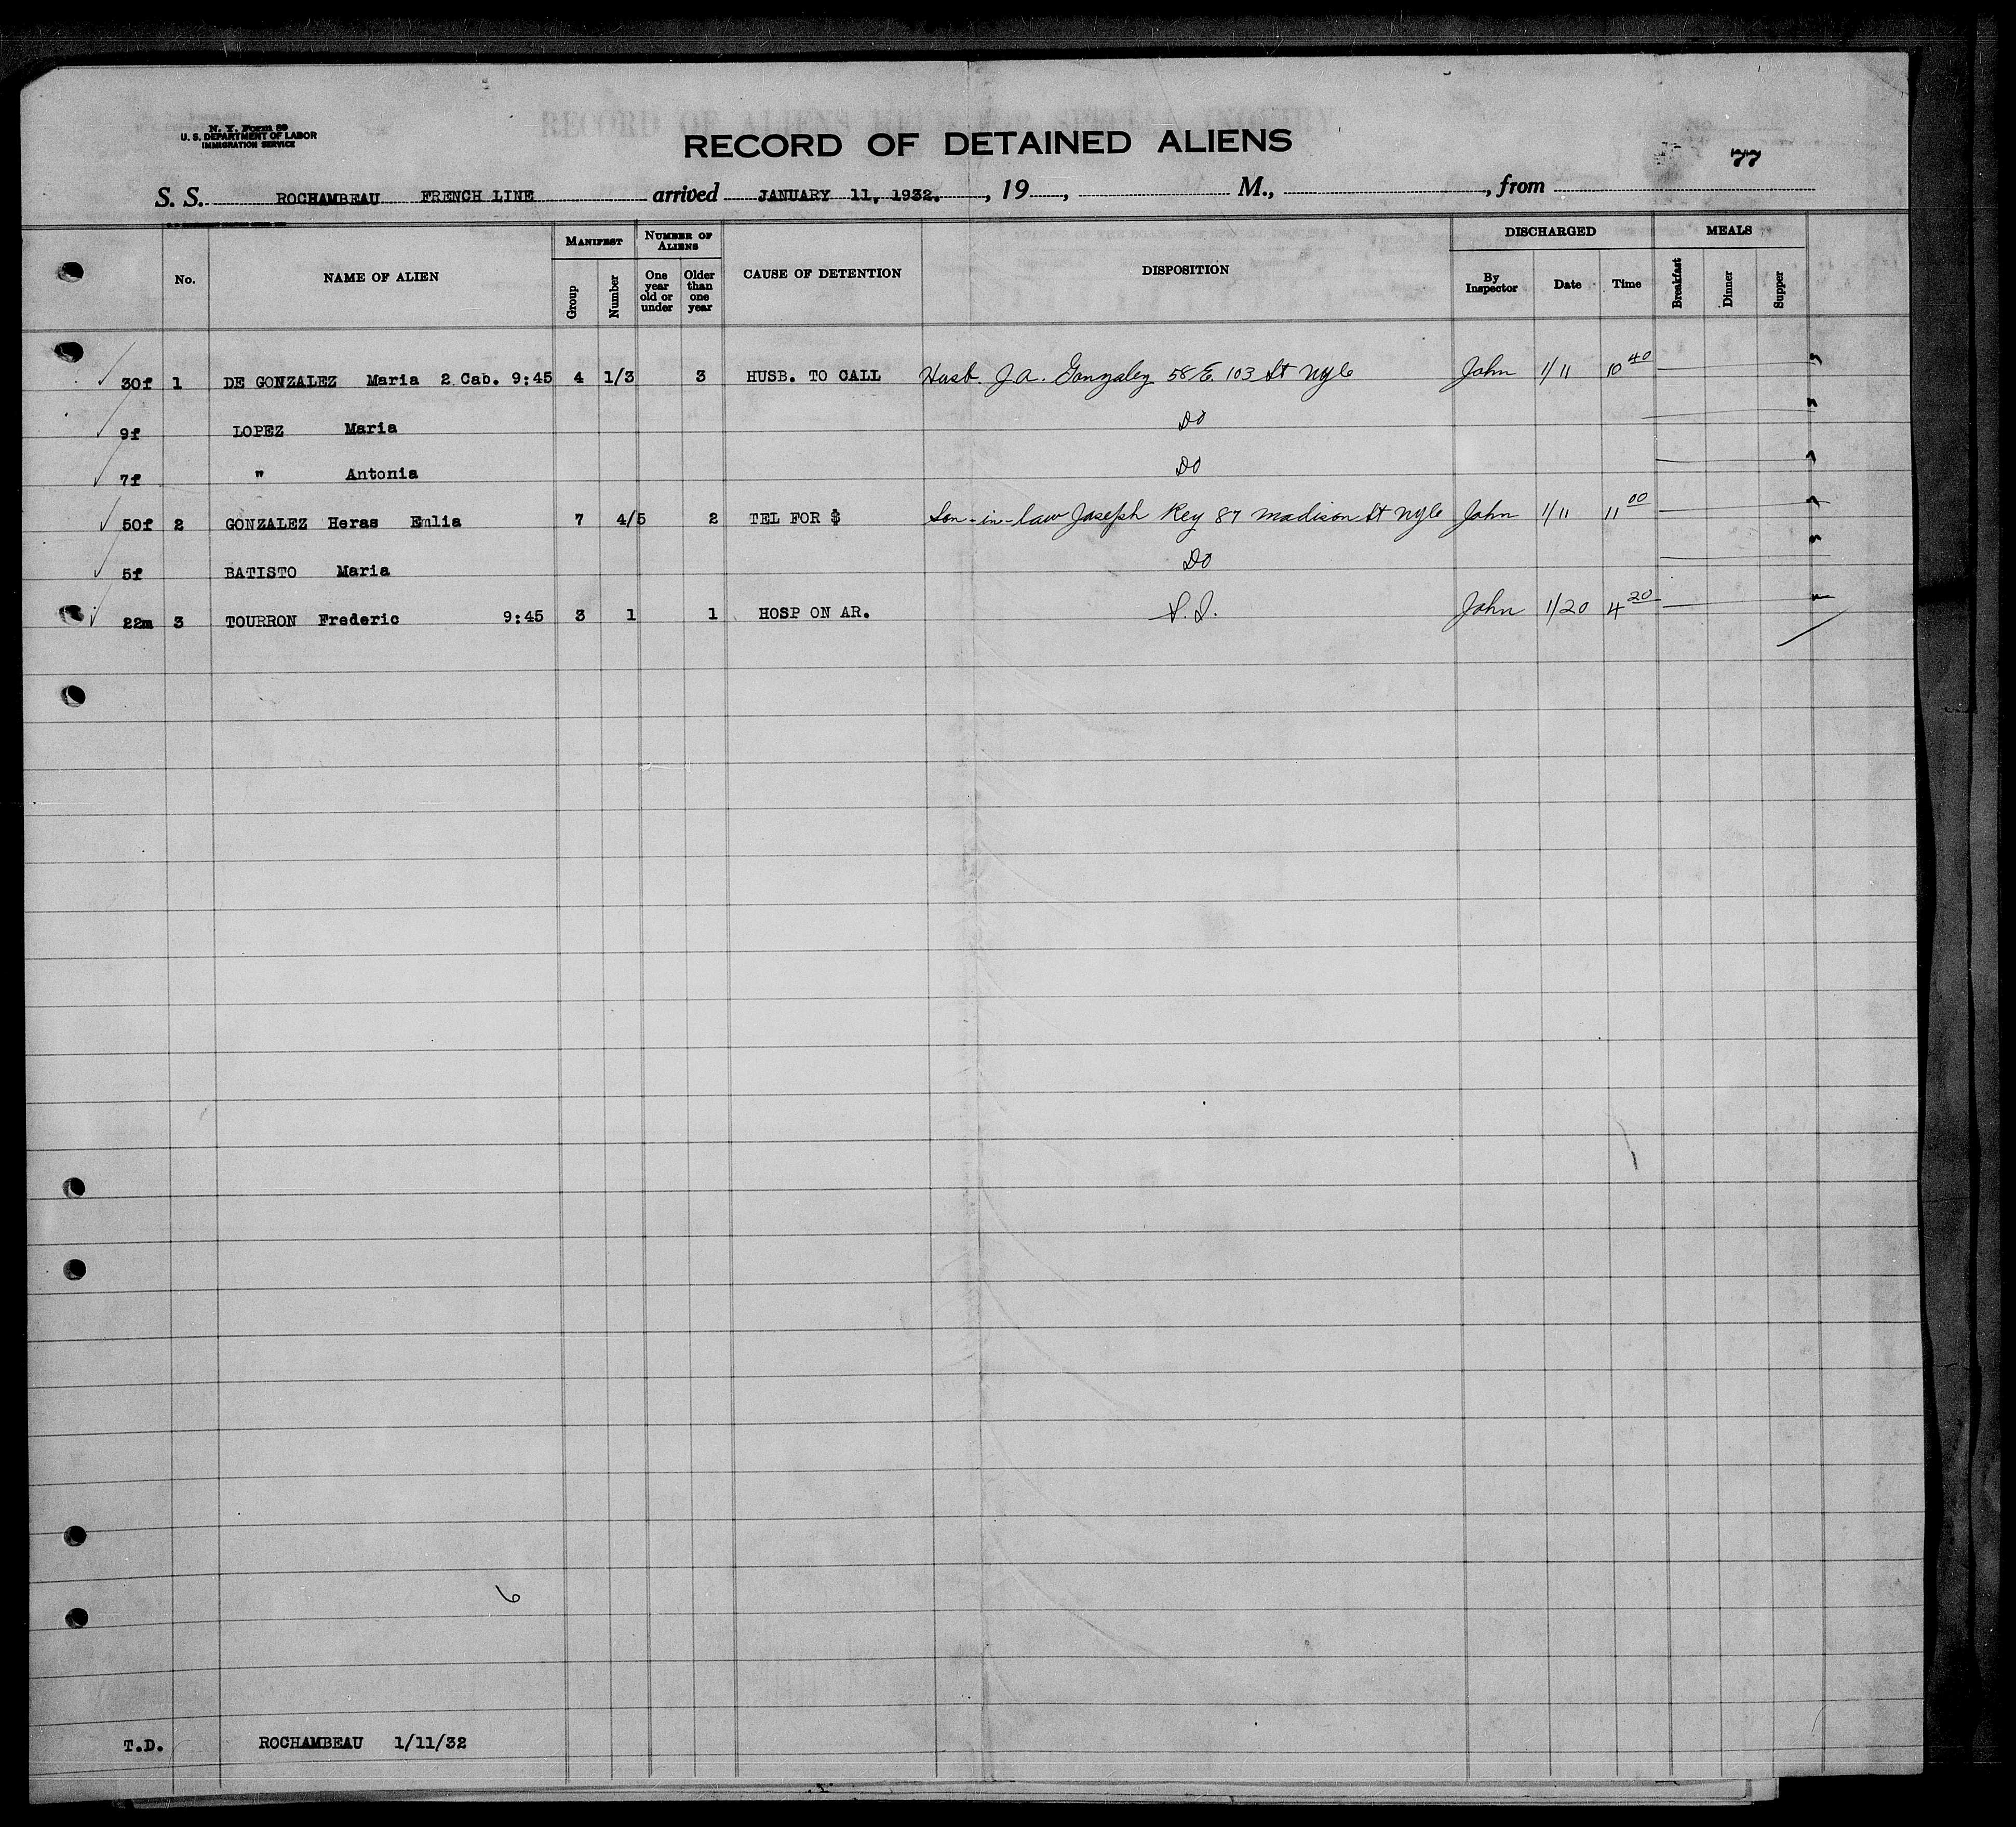 N. Y. Form 89
U. S. DEPARTMENT OF LABOR
IMMIGRATION SERVICE
RECORD OF DETAINED ALIENS
77
S. S. ROCHAMBEAU FRENCH LINE arrived JANUARY 11, 1932. , 19 , M., , from
No. NAME OF ALIEN MANIFEST Group Number NUMBER OF ALIENS One year old or under Older than one year CAUSE OF DETENTION DISPOSITION DISCHARGED By Inspector Date Time MEALS Breakfast Dinner Supper
30f 1 DE GONZALEZ Maria 2 Cab. 9:45 4 1/3 3 HUSB. TO CALL Husb. J.A. Gonzalez 58 E. 103 St NYC John 1/11 10 40
9f LOPEZ Maria Do
7f " Antonia Do
50f 2 GONZALEZ Heras Emlia 7 4/5 2 TEL FOR $ Son-in-law Joseph Rey 87 Madison St NYC John 1/11 11 00
5f BATISTO Maria Do
22m 3 TOURRON Frederic 9:45 3 1 1 HOSP ON AR. S.I. John 1/20 4 20
6
T.D. ROCHAMBEAU 1/11/32